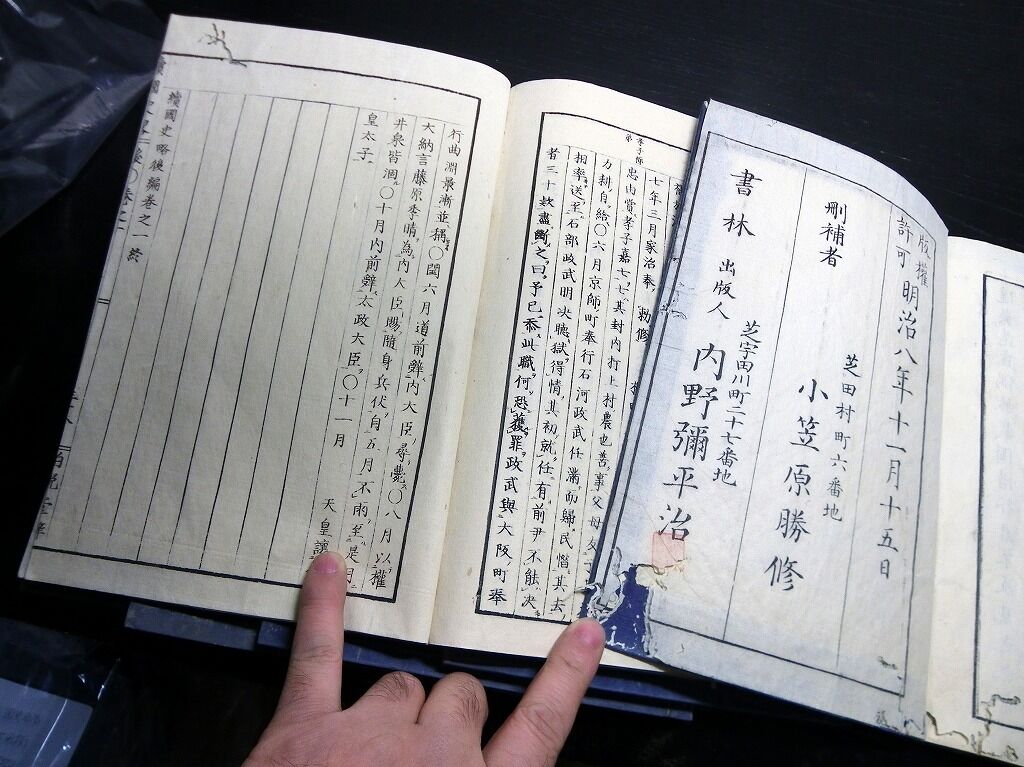 版權
許可明治八年十一月十五日
芝田村町六番地
刪補者 小笠原勝修
芝宇田川町二十七番地
書林 出版人 內野彌平治
孝子節
七年三月家治奉 勅修
忠由賞孝子嘉七七其封内打上村農也善事父母友
力耕自給〇六月京師町奉行石河政武任滿而歸民惜其去
相率送至石部政武明决聽獄得情其初就任有前尹不能决
者三十款盡斷之曰予已忝此職何恐獲罪政武與大阪町奉
行曲淵最漸並稱〇閏六月道前辭内大臣尋薨〇八月以權
大納言藤原季晴為内大臣賜隨身兵仗自五月不雨至是月
井泉皆涸〇十月内前辭太政大臣〇十一月 天皇讓
皇太子
續國史略後編卷之一終